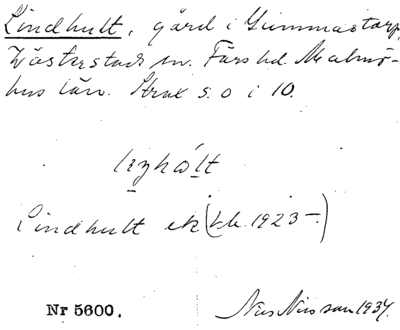 Lindhult, gård i Gummastorp,
Västerstads sn. Färs hd. Malmö-
hus län. Strax s. o i 10.
Lindhult ek (kb. 1923 –)
Nr 5600. Nils Nilsson 1934.